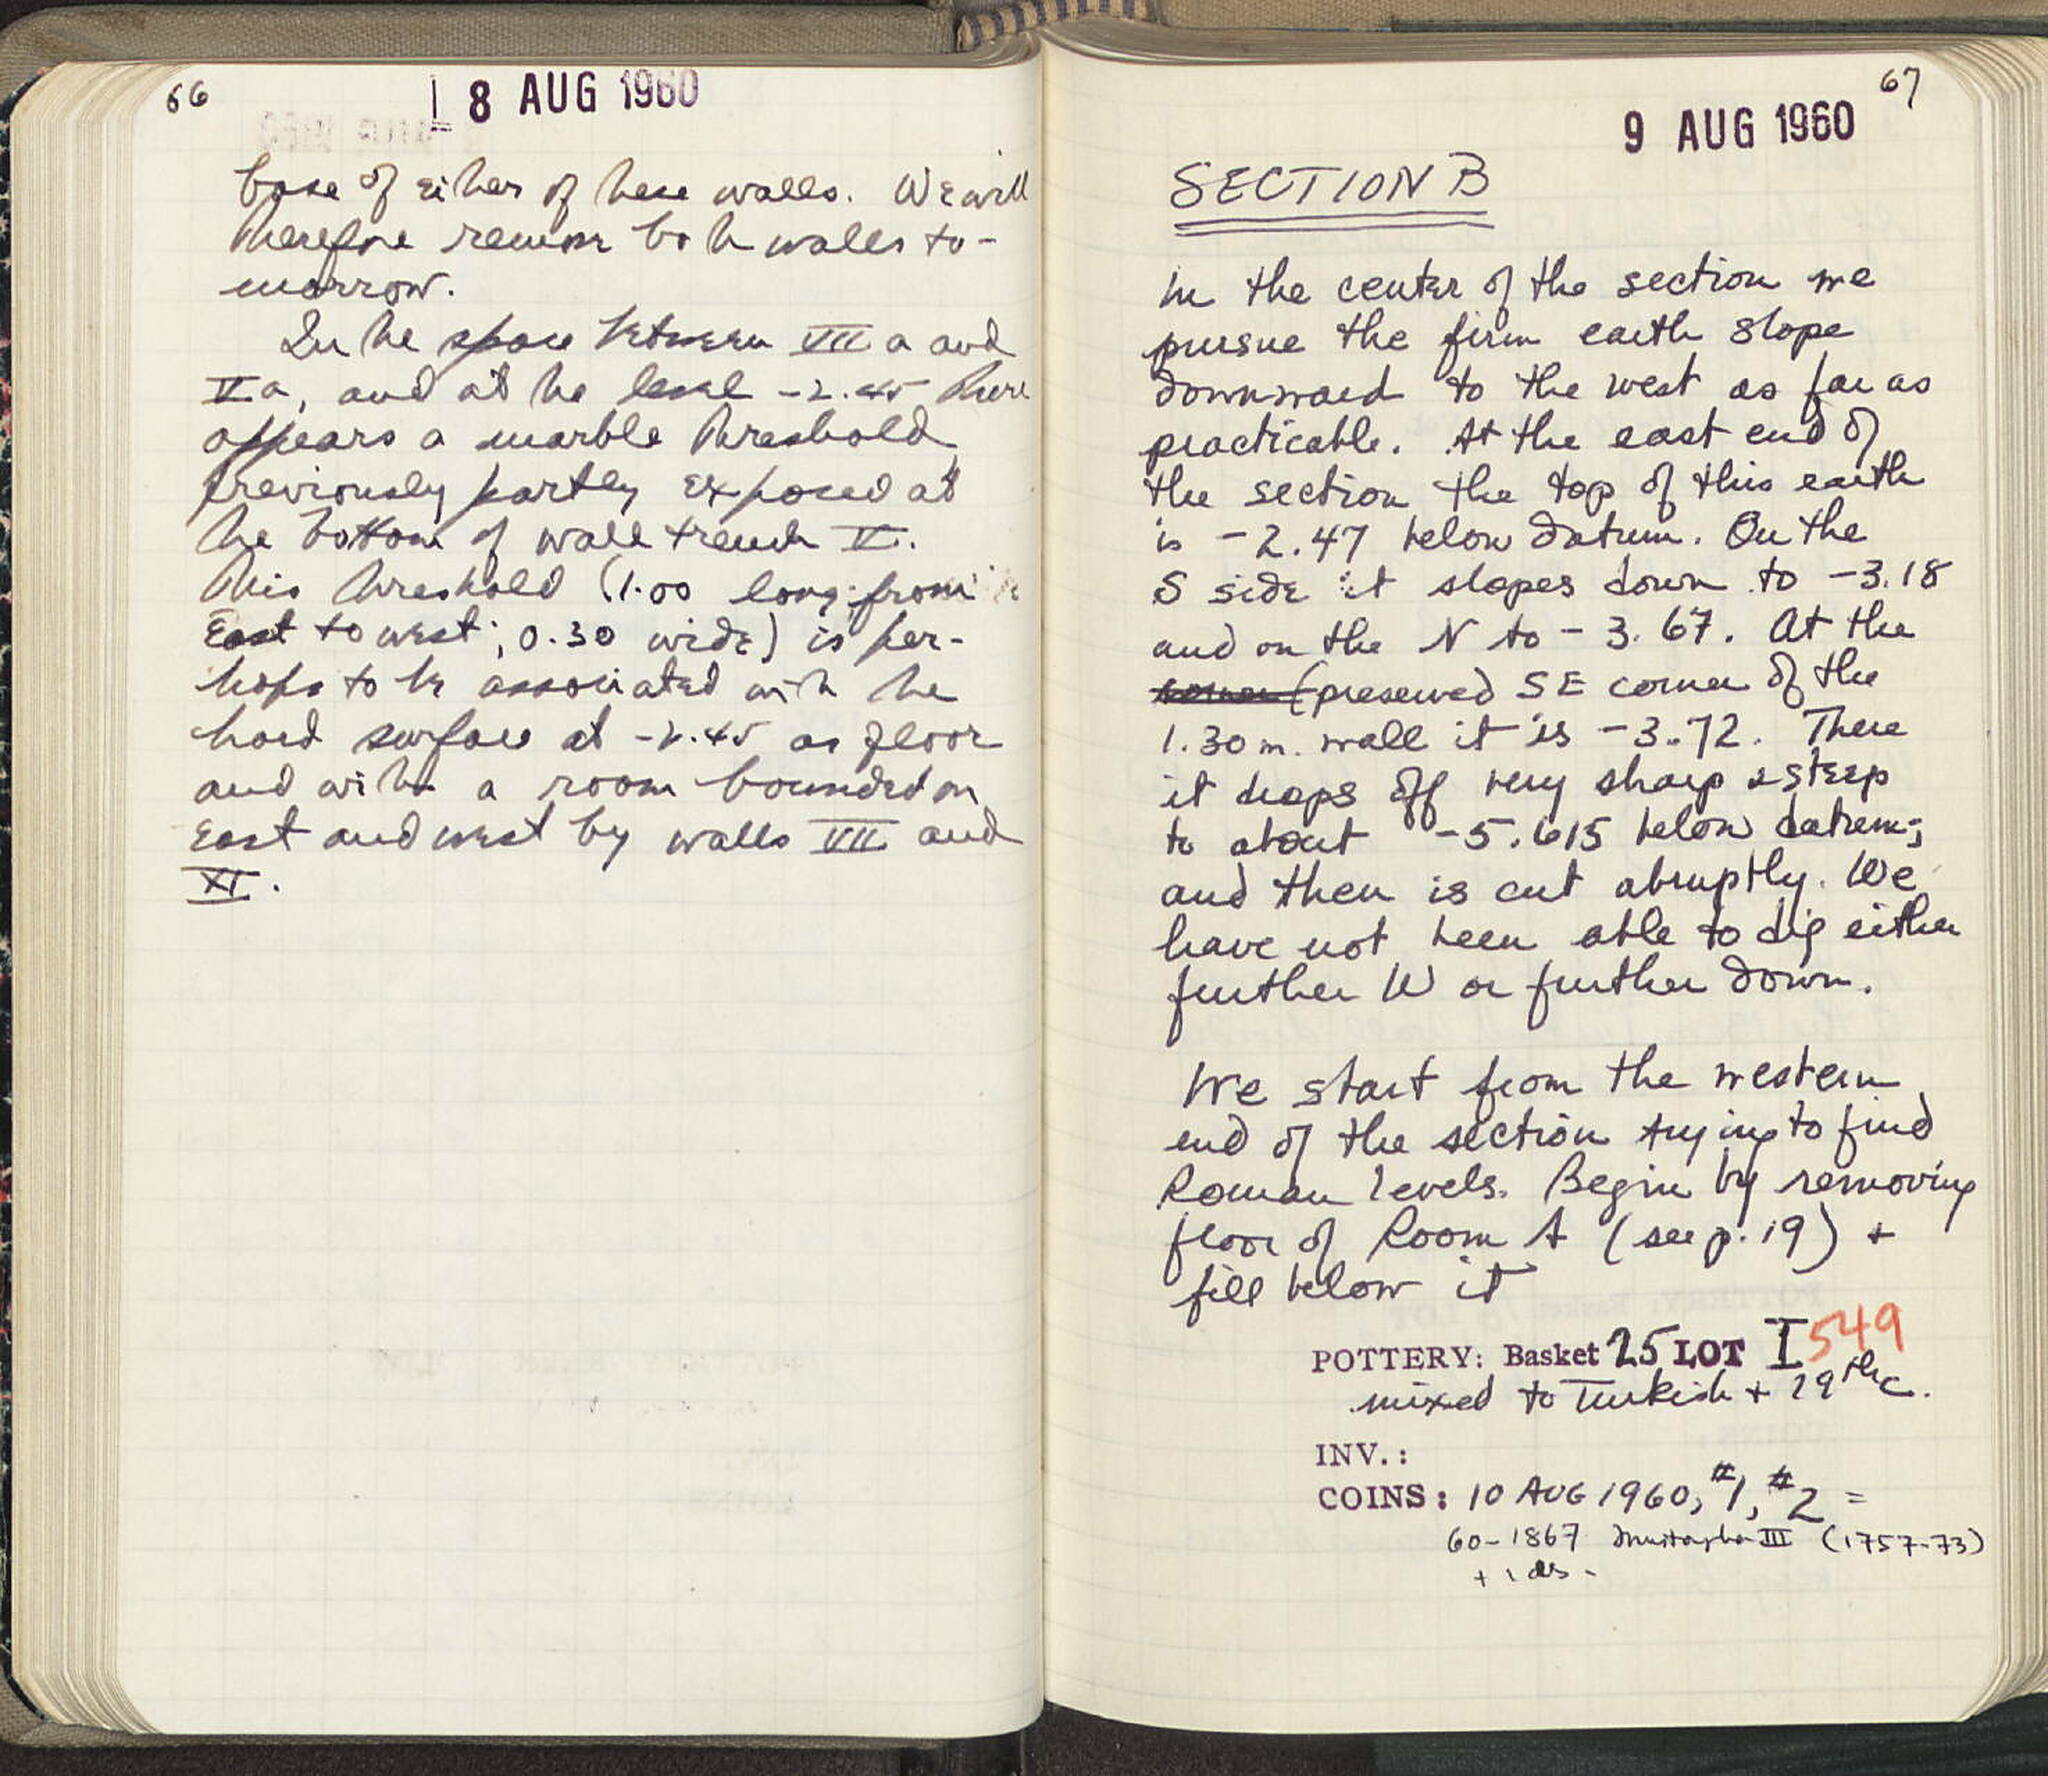 66
8 AUG 1960
base of either of these walls. We will
therefore remove both walls to-
morrow.
In the space between VII a and
V a, and at the level -2.45 there
appears a marble threshold
previously partly exposed at
the bottom of wall trench V.
This threshold (1.00 long from
East to west; 0.30 wide) is per-
haps to be associated with the
hard surface at -2.45 as floor
and with a room bounded on
East and west by walls VII and
XI.
67
9 AUG 1960
SECTION B
In the center of the section we
pursue the firm earth slope
downward to the west as far as
practicable. At the east end of
the section the top of this earth
is -2.47 below datum. On the
S side it slopes down to -3.18
and on the N to -3.67. At the
(preserved SE corner of the
1.30 m. wall it is -3.72. There
it drops off very sharp & steep
to about -5.615 below datum;
and then is cut abruptly. We
have not been able to dig either
further W or further down.
We start from the western
end of the section trying to find
Roman levels. Begin by removing
floor of Room A (see p. 19) +
fill below it
POTTERY: Basket 25 LOT I 549
mixed to Turkish + 19th c.
INV.:
COINS: 10 AUG 1960, #1, #2 =
60-1867 Mustapha III (1757-73)
+ 1 dis.